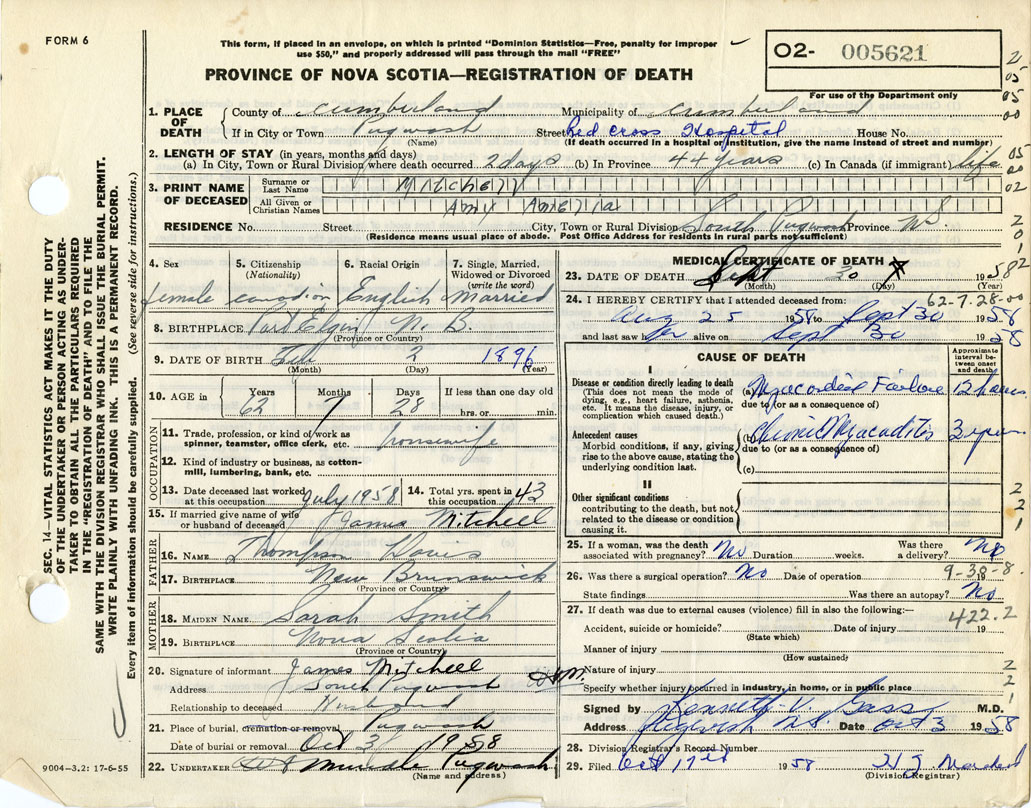 FORM 6
This form, if placed in an envelope, on which is printed "Dominion Statistics—Free, penalty for improper
use $50," and properly addressed will pass through the mail "FREE"
O2- 005621
For use of the Department only
PROVINCE OF NOVA SCOTIA—REGISTRATION OF DEATH
SEC. 14—VITAL STATISTICS ACT MAKES IT THE DUTY
OF THE UNDERTAKER OR PERSON ACTING AS UNDER-
TAKER TO OBTAIN ALL THE PARTICULARS REQUIRED
IN THE "REGISTRATION OF DEATH" AND TO FILE THE
SAME WITH THE DIVISION REGISTRAR WHO SHALL ISSUE THE BURIAL PERMIT.
WRITE PLAINLY WITH UNFADING INK. THIS IS A PERMANENT RECORD.
Every item of information should be carefully supplied. (See reverse side for instructions.)
1. PLACE OF DEATH County of Cumberland Municipality of Cumberland
If in City or Town Pugwash Street Red Cross Hospital House No.
(Name) (If death occurred in a hospital or institution, give the name instead of street and number)
2. LENGTH OF STAY (in years, months and days)
(a) In City, Town or Rural Division where death occurred 2 days (b) In Province 44 years (c) In Canada (if immigrant) life
3. PRINT NAME OF DECEASED Surname or Last Name Mitchell
All Given or Christian Names Amy Amelia
RESIDENCE No. Street City, Town or Rural Division South Pugwash Province N.S.
(Residence means usual place of abode. Post Office Address for residents in rural parts not sufficient)
4. Sex 5. Citizenship (Nationality) 6. Racial Origin 7. Single, Married, Widowed or Divorced (write the word)
female canadian English Married
8. BIRTHPLACE Port Elgin N.B.
(Province or Country)
9. DATE OF BIRTH 2 1896
(Month) (Day) (Year)
10. AGE in Years Months Days If less than one day
62 7 28 hrs. or min.
OCCUPATION
11. Trade, profession, or kind of work as spinner, teamster, office clerk, etc. housewife
12. Kind of industry or business, as cotton-mill, lumbering, bank, etc.
13. Date deceased last worked at this occupation July 1958 14. Total yrs. spent in this occupation 43
15. If married give name of wife or husband of deceased James Mitchell
FATHER
16. NAME Thompson Davis
17. BIRTHPLACE New Brunswick
(Province or Country)
MOTHER
18. MAIDEN NAME Sarah Smith
19. BIRTHPLACE Nova Scotia
(Province or Country)
20. Signature of informant James Mitchell
Address South Pugwash
Relationship to deceased Husband
21. Place of burial, cremation or removal Pugwash
Date of burial or removal Oct 3 1958
22. UNDERTAKER Mundle Pugwash
(Name and address)
9004—3.2: 17-6-55
MEDICAL CERTIFICATE OF DEATH
23. DATE OF DEATH Sept 30 1958
(Month) (Day) (Year)
24. I HEREBY CERTIFY that I attended deceased from: 62-7-28-00
Aug 25 1958 to Sept 30 1958
and last saw her alive on Sept 30 1958
CAUSE OF DEATH
Approximate interval between onset and death
I
Disease or condition directly leading to death
(This does not mean the mode of dying, e.g., heart failure, asthenia, etc. It means the disease, injury, or complication which caused death.)
(a) Myocardial Failure 12 hours
due to (or as a consequence of)
Antecedent causes
Morbid conditions, if any, giving rise to the above cause, stating the underlying condition last.
(b) Chronic Myocarditis 3 years
due to (or as a consequence of)
(c)
II
Other significant conditions contributing to the death, but not related to the disease or condition causing it.
25. If a woman, was the death associated with pregnancy? No Duration weeks. Was there a delivery? No
26. Was there a surgical operation? No Date of operation 19
9-30-8
State findings Was there an autopsy? No
27. If death was due to external causes (violence) fill in also the following:—
422.2
Accident, suicide or homicide? Date of injury 19
(State which)
Manner of injury
(How sustained)
Nature of injury
Specify whether injury occurred in industry, in home, or in public place
Signed by Kenneth V. Gass M.D.
Address Pugwash N.S. Date Oct 3 1958
28. Division Registrar's Record Number
29. Filed Oct 17th 1958
(Division Registrar)